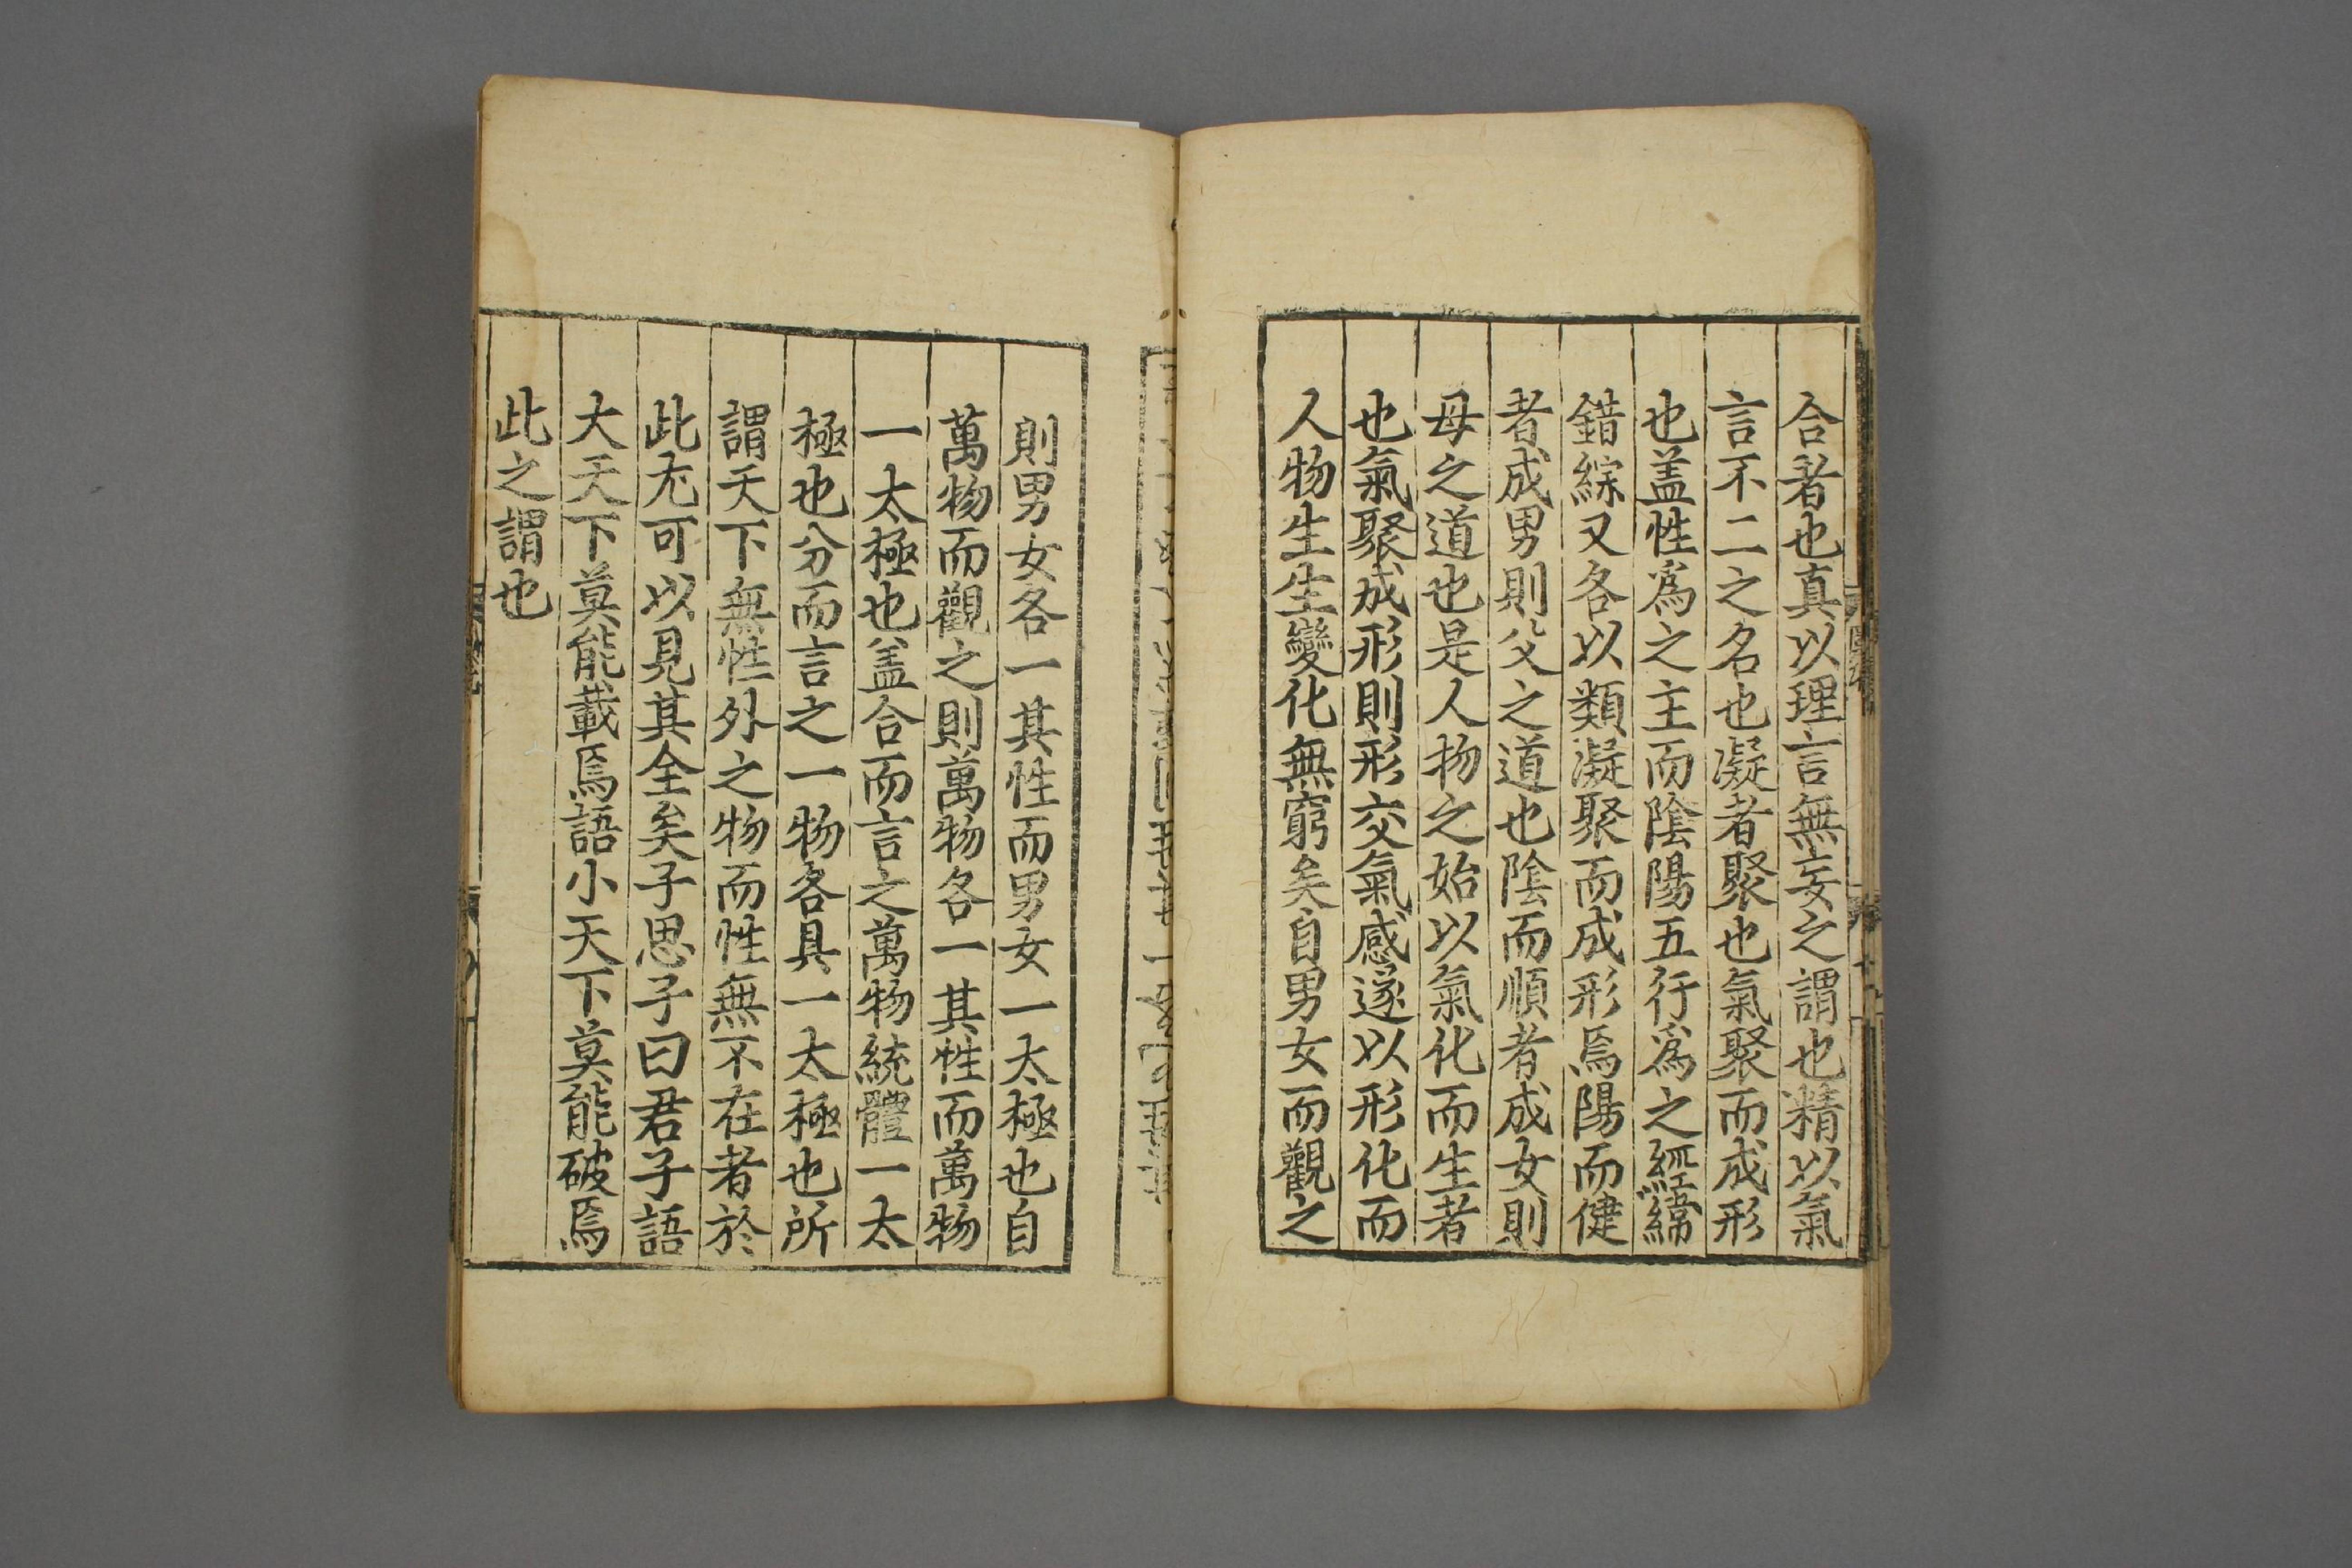 合者也真以理言無妄之謂也精以氣
言不二之名也凝者聚也氣聚而成形
也盖性爲之主而陰陽五行爲之經緯
錯綜又各以類凝聚而成形焉陽而健
者成男則父之道也陰而順者成女則
母之道也是人物之始以氣化而生者
也氣聚成形則形交氣感遂以形化而
人物生生變化無窮矣自男女而觀之
則男女各一其性而男女一太極也自
萬物而觀之則萬物各一其性而萬物
一太極也盖合而言之萬物統體一太
極也分而言之一物各具一太極也所
謂天下無性外之物而性無不在者於
此尤可以見其全矣子思子曰君子語
大天下莫能載焉語小天下莫能破焉
此之謂也